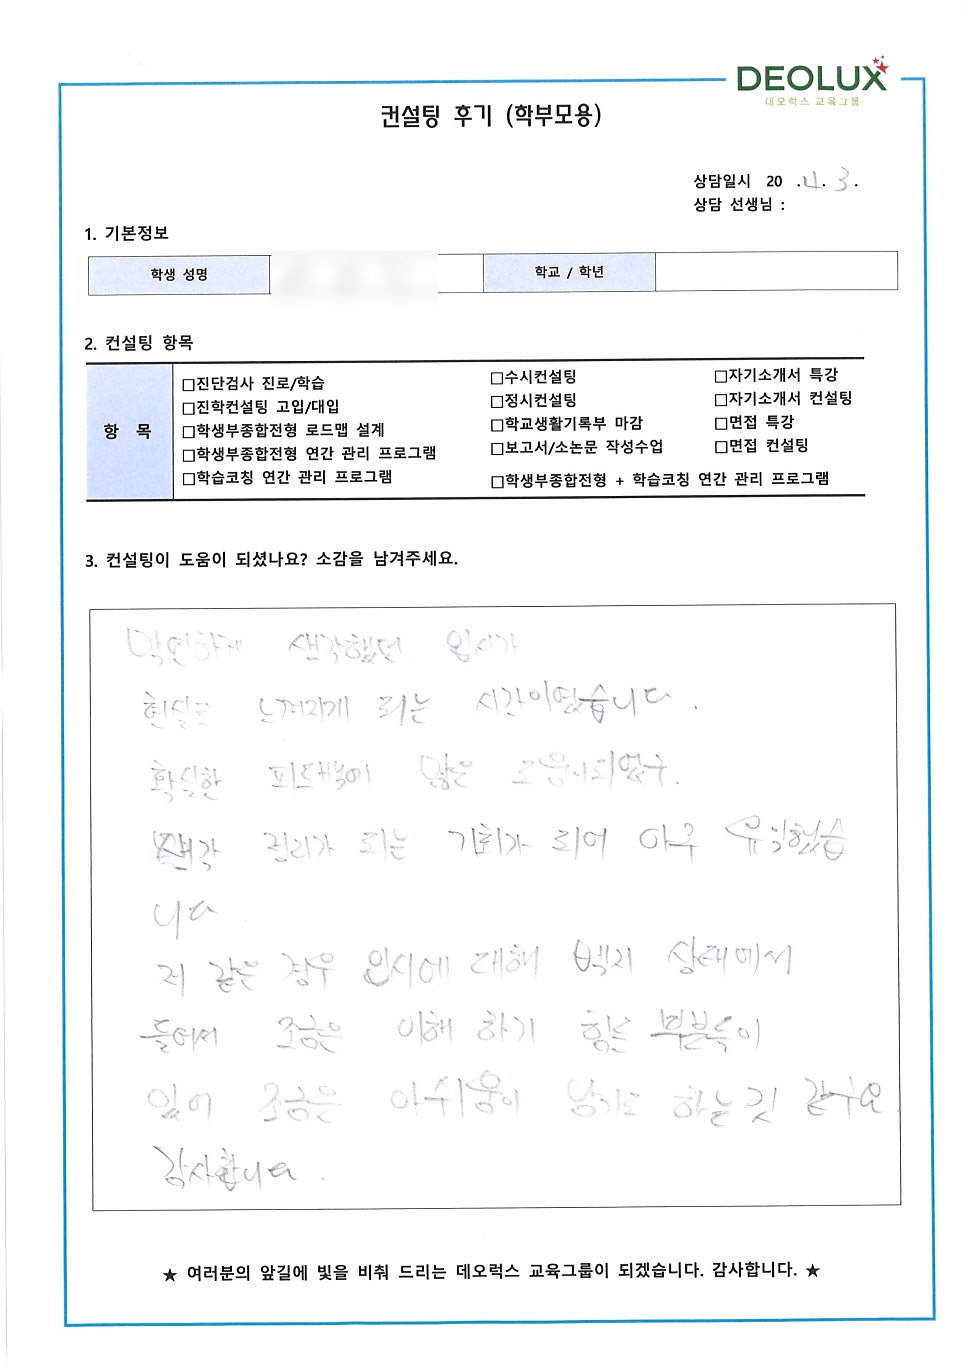 DEOLUX
데오럭스 교육그룹
컨설팅 후기 (학부모용)
상담일시 20 .4. 3.
상담 선생님 :
1. 기본정보
학생 성명
학교 / 학년
2. 컨설팅 항목
항 목
□진단검사 진로/학습 □수시컨설팅 □자기소개서 특강
□진학컨설팅 고입/대입 □정시컨설팅 □자기소개서 컨설팅
□학생부종합전형 로드맵 설계 □학교생활기록부 마감 □면접 특강
□학생부종합전형 연간 관리 프로그램 □보고서/소논문 작성수업 □면접 컨설팅
□학습코칭 연간 관리 프로그램 □학생부종합전형 + 학습코칭 연간 관리 프로그램
3. 컨설팅이 도움이 되셨나요? 소감을 남겨주세요.
막연하게 생각했던 입시가
현실로 느껴지게 되는 시간이었습니다.
확실한 피드백이 많은 도움이되었구.
생각 정리가 되는 기회가 되어 아주 유익했습
니다.
저 같은 경우 입시에 대해 백지 상태에서
들어서 조금은 이해 하기 힘든 부분들이
있어 조금은 아쉬움이 남기도 하는것 같구요
감사합니다.
★ 여러분의 앞길에 빛을 비춰 드리는 데오럭스 교육그룹이 되겠습니다. 감사합니다. ★